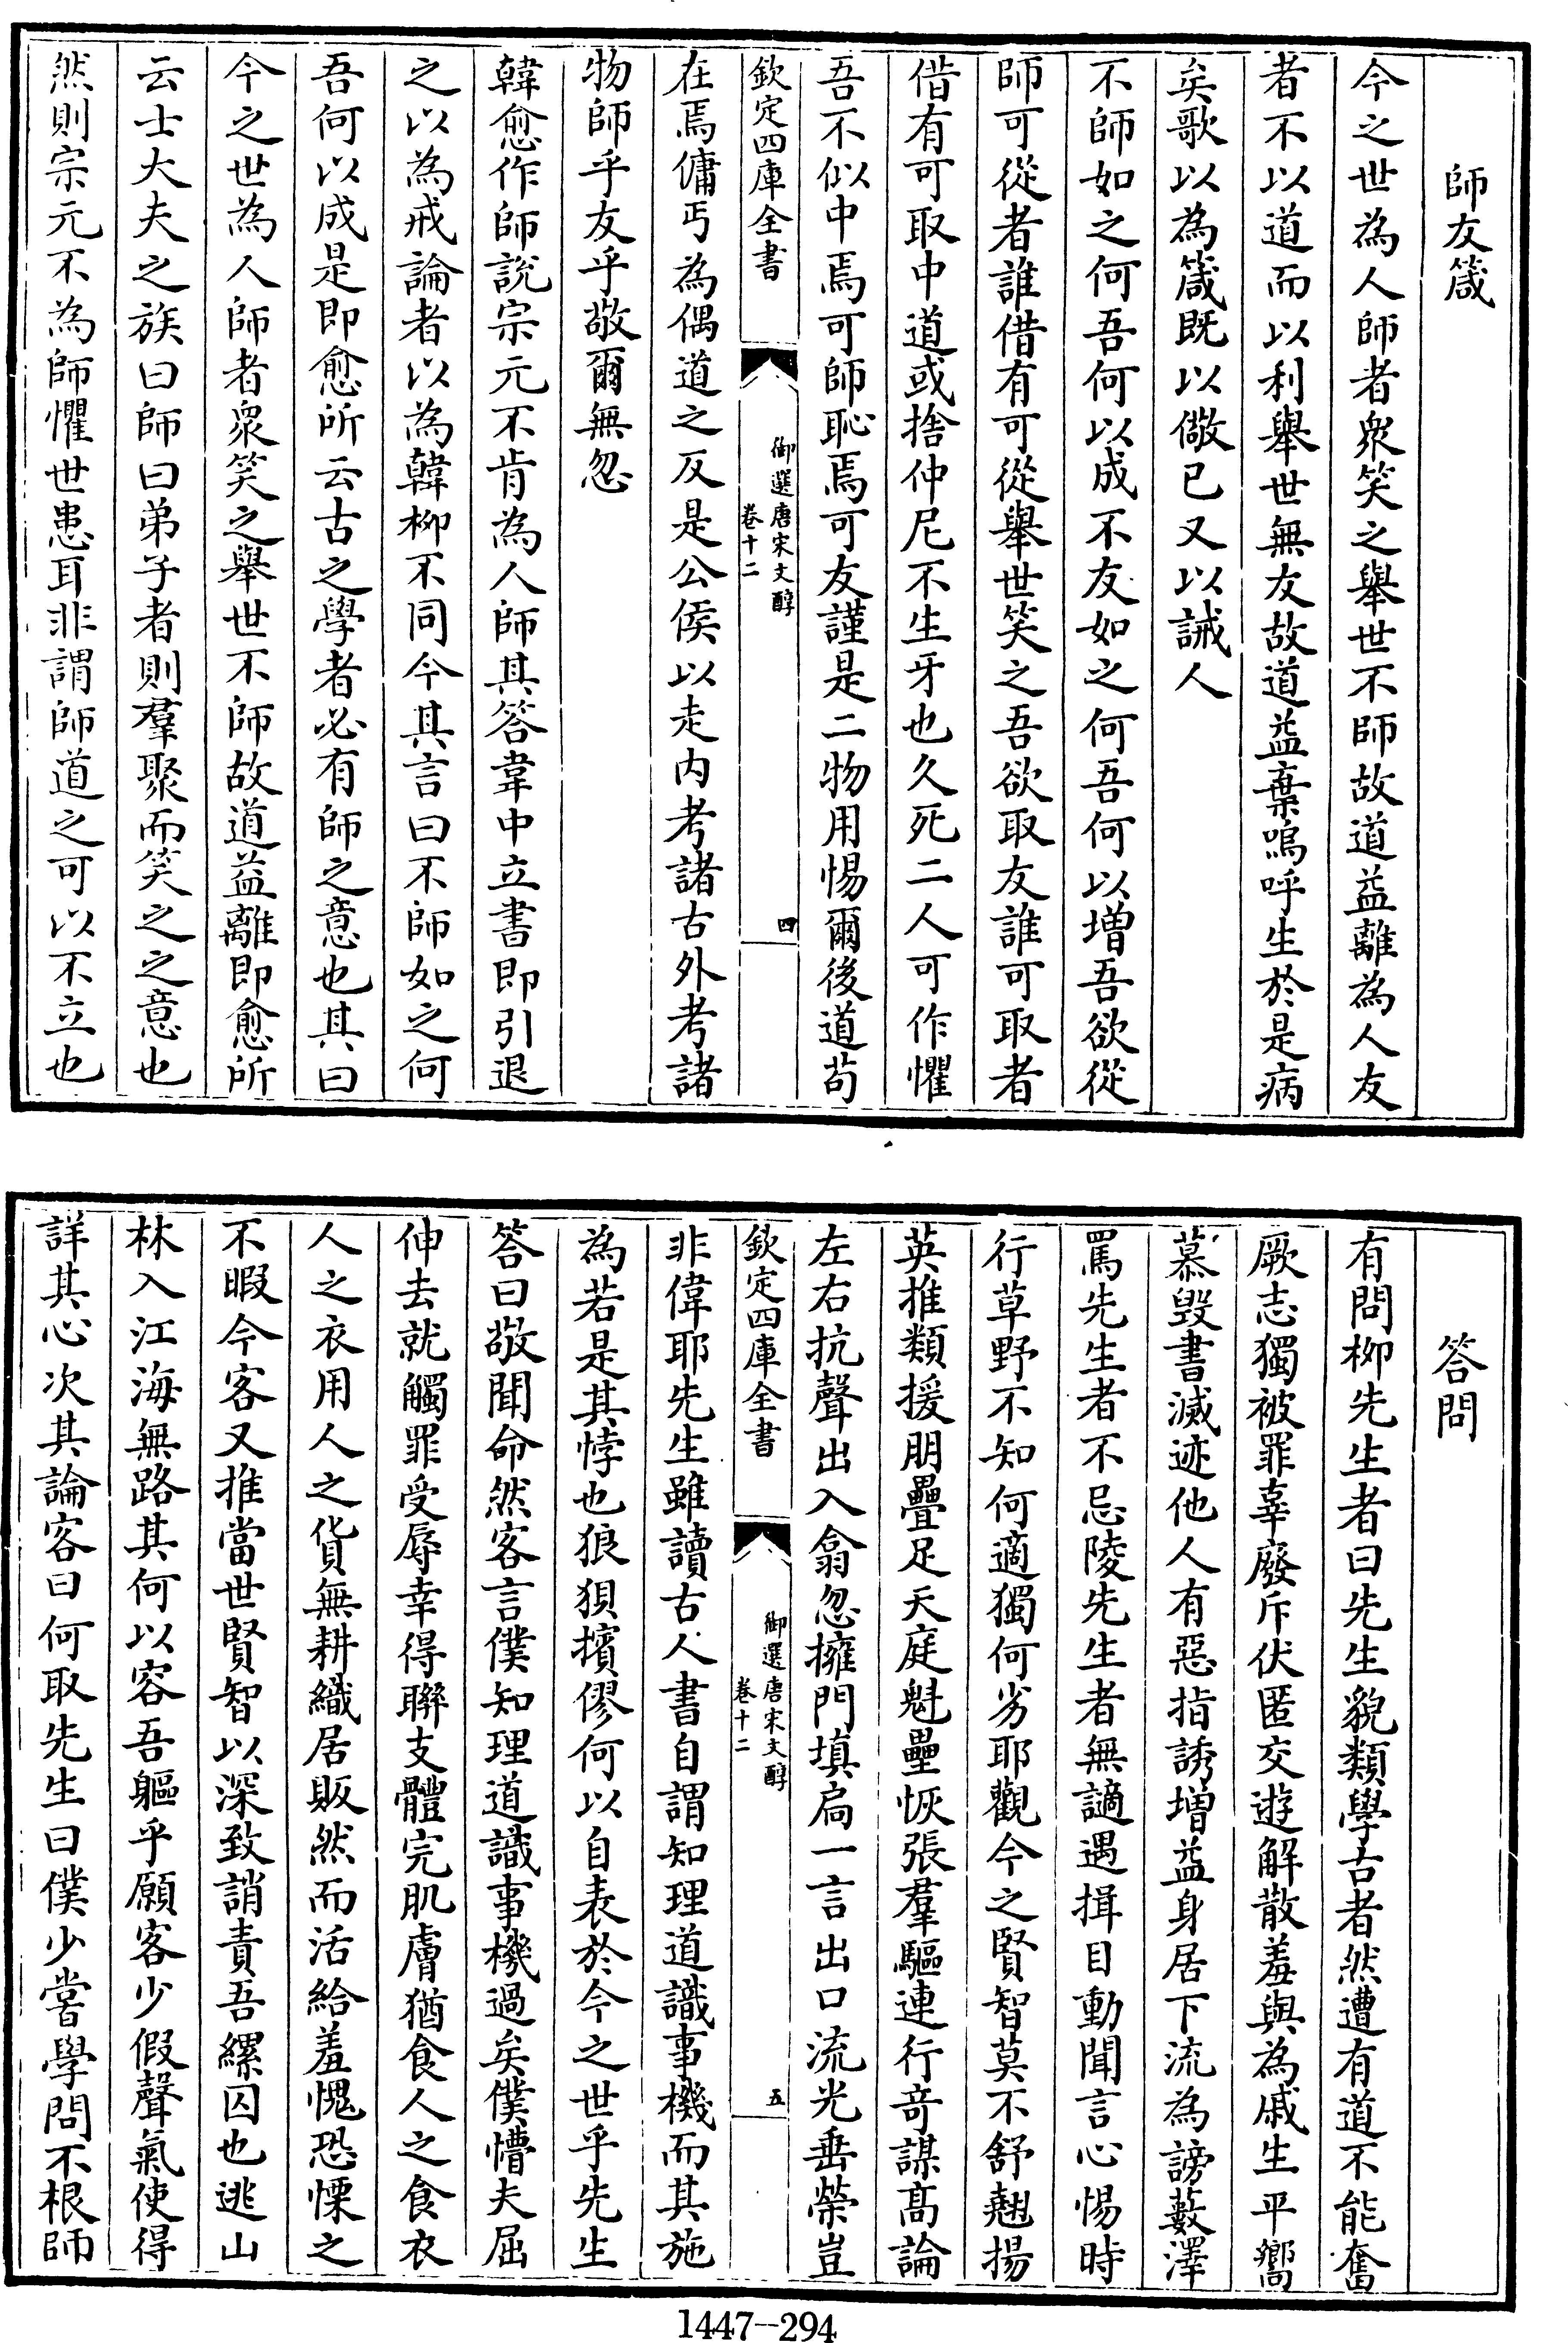 師友箴
今之世為人師者衆笑之舉世不師故道益離為人友
者不以道而以利舉世無友故道益棄嗚呼生於是病
矣歌以為箴既以儆已又以誡人
不師如之何吾何以成不友如之何吾何以增吾欲從
師可從者誰借有可從舉世笑之吾欲取友誰可取者
借有可取中道或捨仲尼不生牙也久死二人可作懼
吾不似中焉可師恥焉可友謹是二物用惕爾後道苟
欽定四庫全書
御選唐宋文醇
卷十二
四
在焉傭丐為偶道之反是公侯以走内考諸古外考諸
物師乎友乎敬爾無忽
韓愈作師說宗元不肯為人師其答韋中立書即引退
之以為戒論者以為韓柳不同今其言曰不師如之何
吾何以成是即愈所云古之學者必有師之意也其曰
今之世為人師者衆笑之舉世不師故道益離即愈所
云士大夫之族曰師曰弟子者則羣聚而笑之之意也
然則宗元不為師懼世患耳非謂師道之可以不立也
答問
有問柳先生者曰先生貌類學古者然遭有道不能奮
厥志獨被罪辜廢斥伏匿交遊解散羞與為戚生平嚮
慕毀書滅迹他人有惡指誘增益身居下流為謗藪澤
罵先生者不忌陵先生者無謫遇揖目動聞言心惕時
行草野不知何適獨何劣耶觀今之賢智莫不舒翹揚
英推類援朋疊足天庭魁壘恢張羣驅連行竒謀髙論
左右抗聲出入翕忽擁門填扃一言出口流光垂榮豈
欽定四庫全書
御選唐宋文醇
卷十二
五
非偉耶先生雖讀古人書自謂知理道識事機而其施
為若是其悖也狼狽擯僇何以自表於今之世乎先生
答曰敬聞命然客言僕知理道識事機過矣僕懵夫屈
伸去就觸罪受辱幸得聯支體完肌膚猶食人之食衣
人之衣用人之貨無耕織居販然而活給羞愧恐慄之
不暇今客又推當世賢智以深致誚責吾縲囚也逃山
林入江海無路其何以容吾軀乎願客少假聲氣使得
詳其心次其論客曰何取先生曰僕少嘗學問不根師
1447-294